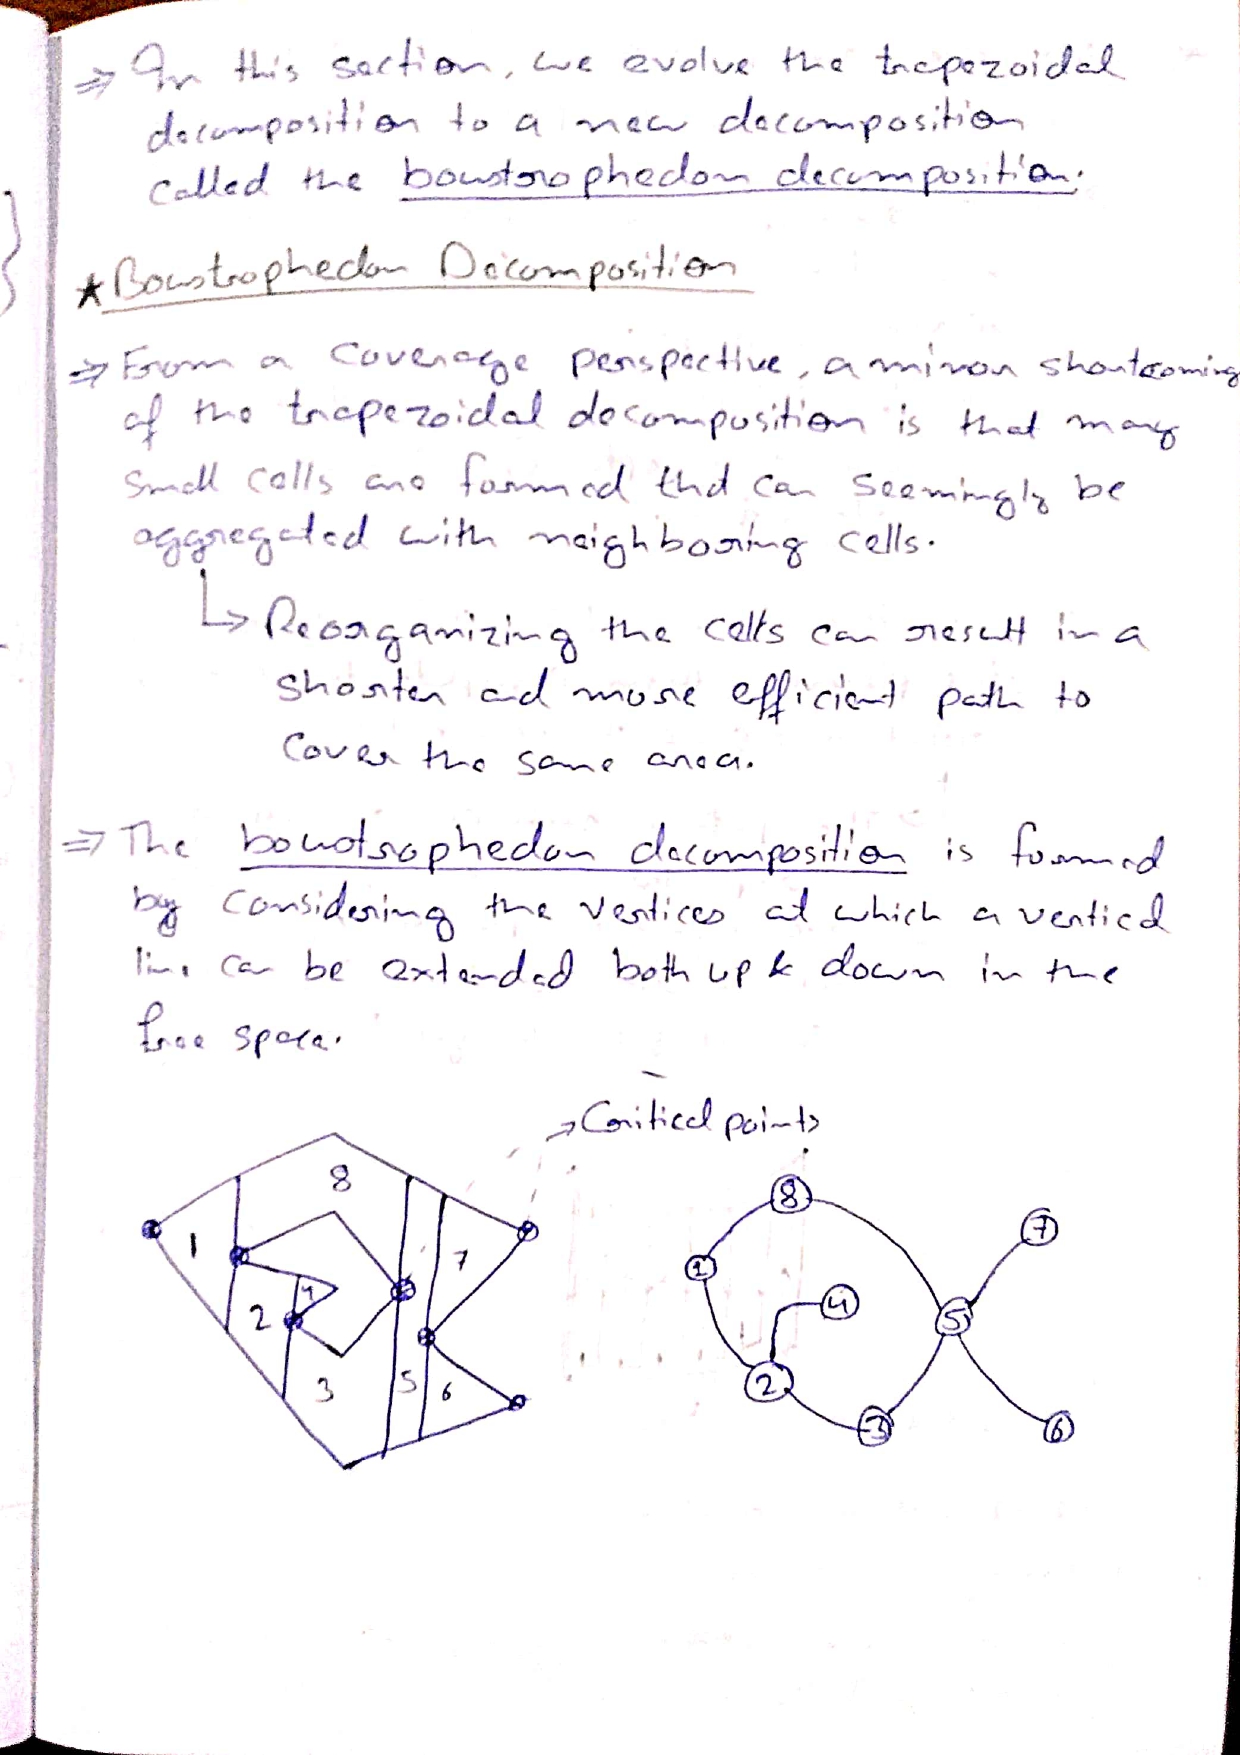 ⇒ In this section, we evolve the trapezoidal
decomposition to a new decomposition
called the boustrophedon decomposition.
★ Boustrophedon Decomposition
⇒ From a coverage perspective, a minor shortcoming
of the trapezoidal decomposition is that many
small cells are formed that can seemingly be
aggregated with neighboring cells.
↳ Reorganizing the cells can result in a
shorter and more efficient path to
cover the same area.
⇒ The boustrophedon decomposition is formed
by considering the vertices at which a vertical
line can be extended both up & down in the
free space.
→ Critical points
8
1
7
4
2
3
5
6
8
7
1
4
5
2
3
6